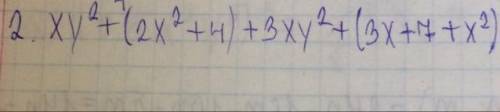 2. xy²+(2x²+4)+3xy²+(3x+7+x²)